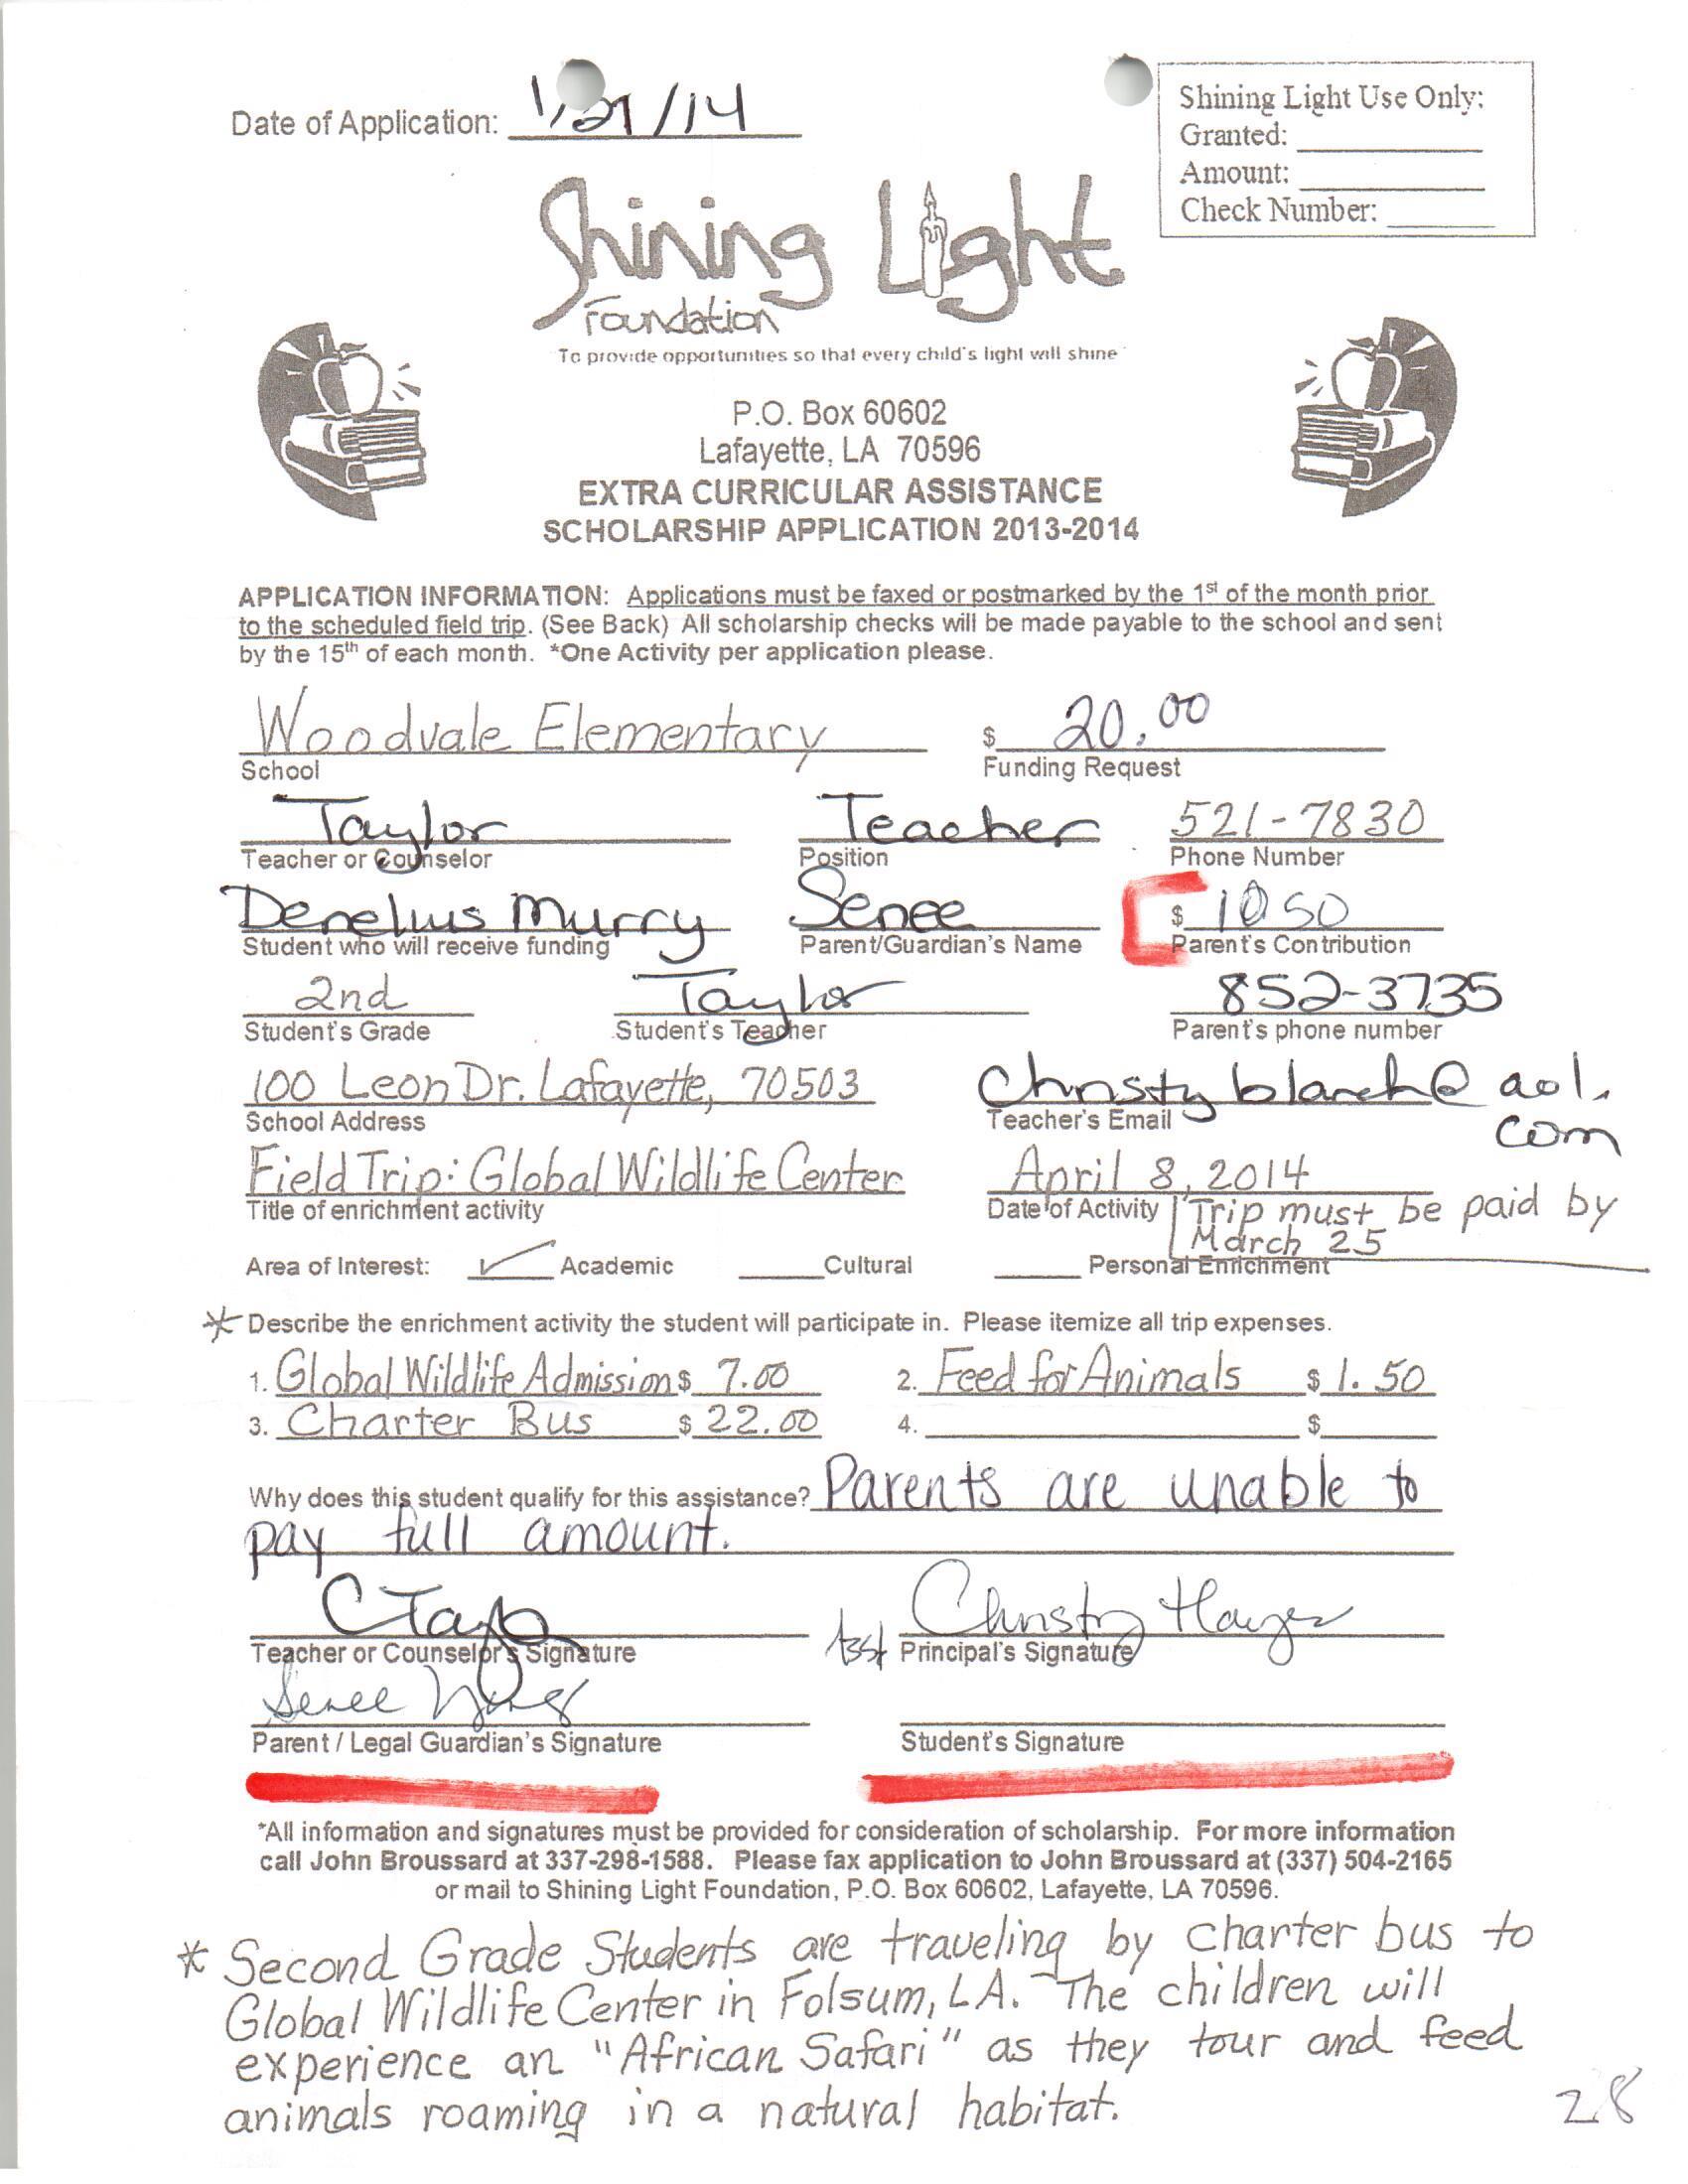 Date of Application: 1/27/14
Shining Light Use Only:
Granted:
Amount:
Check Number:
Shining Light
Foundation
To provide opportunities so that every child's light will shine
P.O. Box 60602
Lafayette, LA 70596
EXTRA CURRICULAR ASSISTANCE
SCHOLARSHIP APPLICATION 2013-2014
APPLICATION INFORMATION: Applications must be faxed or postmarked by the 1st of the month prior
to the scheduled field trip. (See Back) All scholarship checks will be made payable to the school and sent
by the 15th of each month. *One Activity per application please.
Woodvale Elementary $ 20.00
School Funding Request
Taylor Teacher 521-7830
Teacher or Counselor Position Phone Number
Murry Senee $ 10 50
Student who will receive funding Parent/Guardian's Name Parent's Contribution
2nd Taylor 852-3735
Student's Grade Student's Teacher Parent's phone number
100 Leon Dr. Lafayette, 70503 @ aol.
School Address Teacher's Email com
Field Trip: Global Wildlife Center April 8, 2014
Title of enrichment activity Date of Activity Trip must be paid by
March 25
Area of Interest: ✓ Academic Cultural Personal Enrichment
* Describe the enrichment activity the student will participate in. Please itemize all trip expenses.
1. Global Wildlife Admission $ 7.00 2. Feed for Animals $ 1.50
3. Charter Bus $ 22.00 4. $
Why does this student qualify for this assistance? Parents are unable to
pay full amount.
C Taylor Christy Hayes
Teacher or Counselor's Signature Asst Principal's Signature
Senee
Parent / Legal Guardian's Signature Student's Signature
*All information and signatures must be provided for consideration of scholarship. For more information
call John Broussard at 337-298-1588. Please fax application to John Broussard at (337) 504-2165
or mail to Shining Light Foundation, P.O. Box 60602, Lafayette, LA 70596.
* Second Grade Students are traveling by charter bus to
Global Wildlife Center in Folsum, LA. The children will
experience an "African Safari" as they tour and feed
animals roaming in a natural habitat.
28